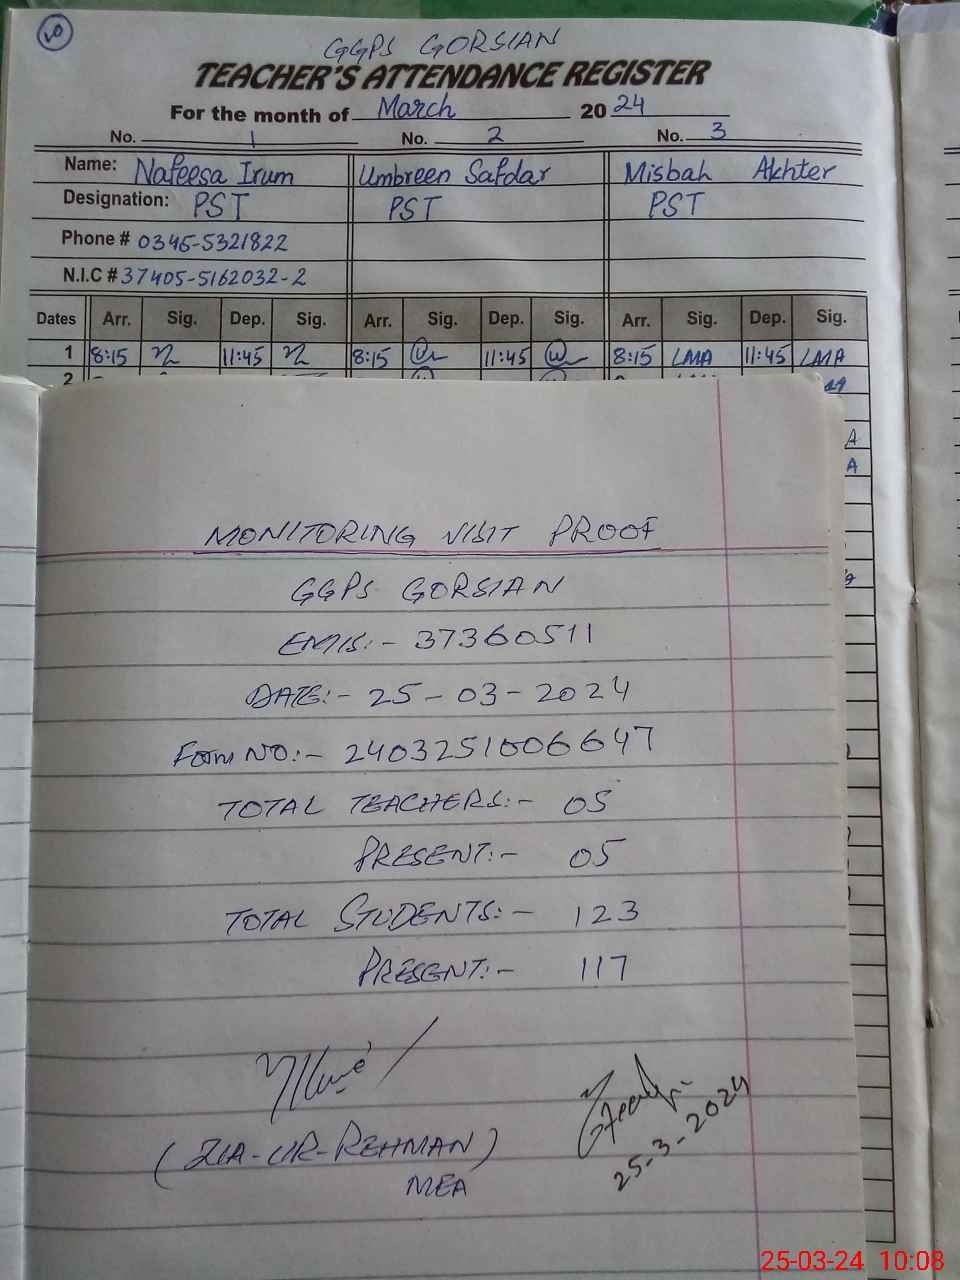 10
GGPS GORSIAN
TEACHER'S ATTENDANCE REGISTER
For the month of March 2024
No. 1 No. 2 No. 3
Name: Nafeesa Irum Umbreen Safdar Misbah Akhter
Designation: PST PST PST
Phone # 0345-5321822
N.I.C # 37405-5162032-2
Dates Arr. Sig. Dep. Sig. Arr. Sig. Dep. Sig. Arr. Sig. Dep. Sig.
1 8:15 11:45 8:15 11:45 8:15 LMA 11:45 LMA
2
A
A
MONITORING VISIT PROOF
GGPS GORSIAN
EMIS:- 37360511
DATE:- 25-03-2024
Form NO:- 2403251006647
TOTAL TEACHERS:- 05
PRESENT:- 05
TOTAL STUDENTS:- 123
PRESENT:- 117
(ZIA-UR-REHMAN)
MEA
25-3-2024
25-03-24 10:08